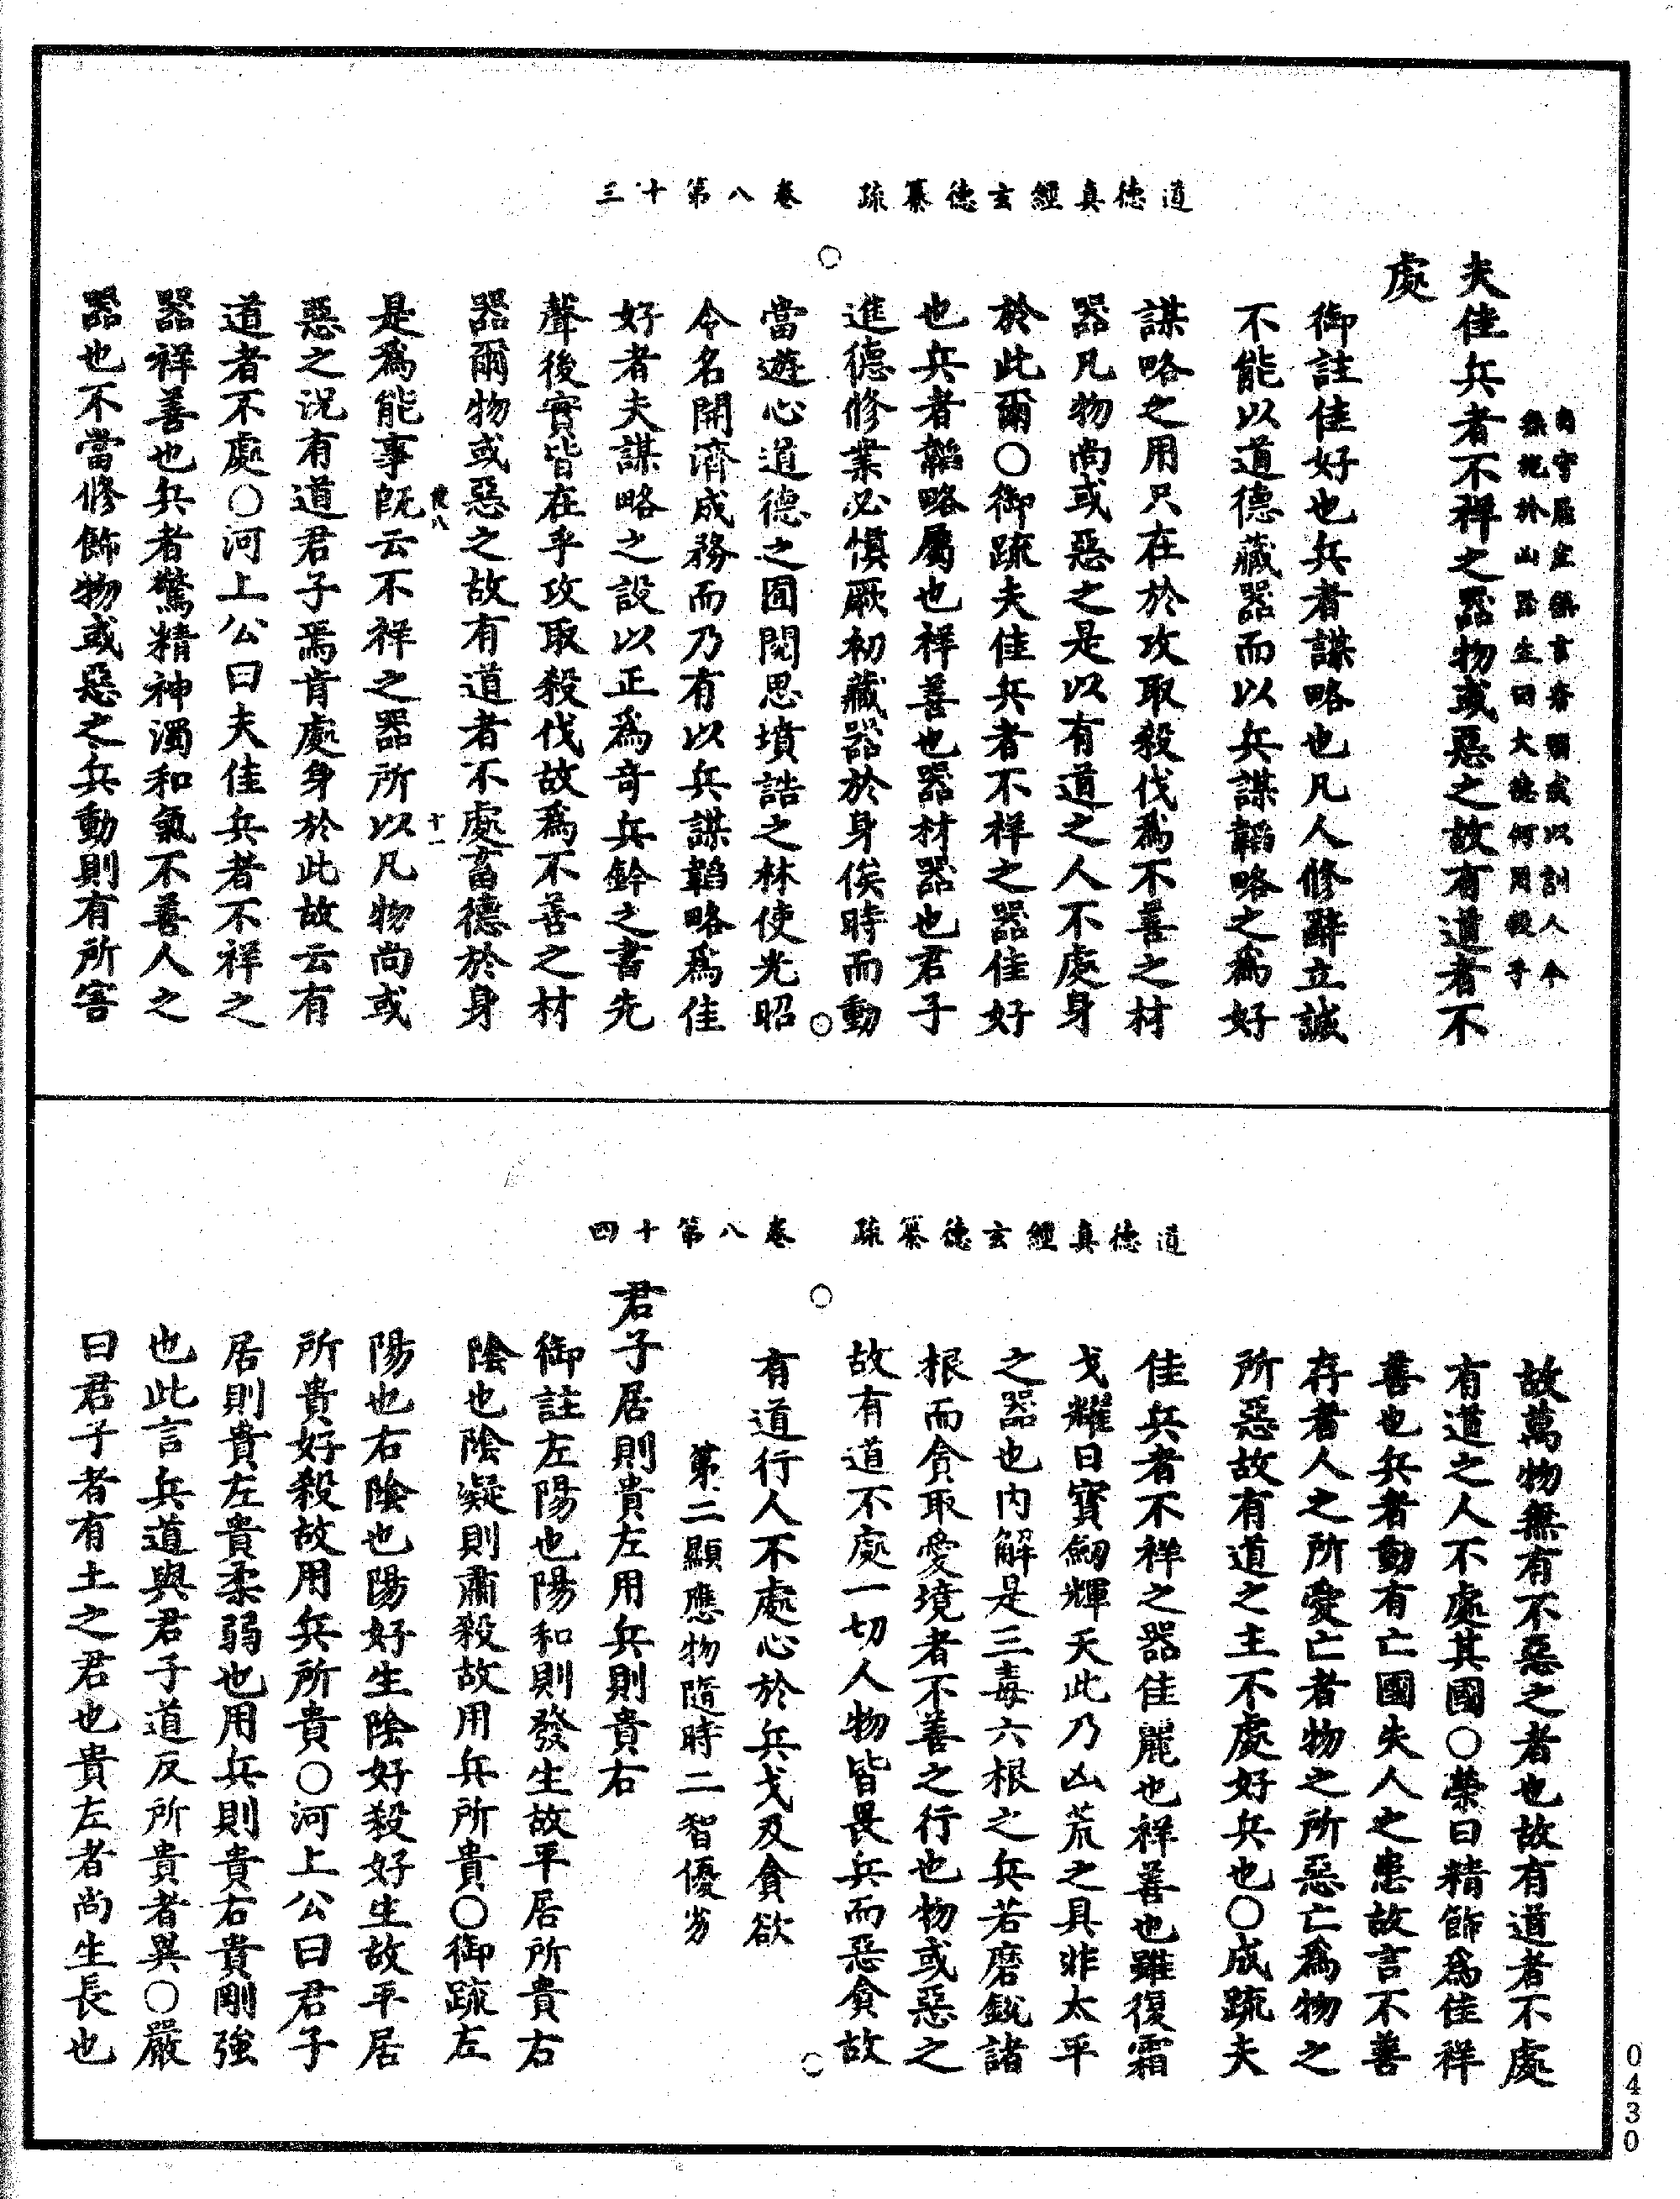 道德真經玄德纂疏 卷八第十三
夫佳兵者不祥之器物或惡之故有道者不
處
御註佳好也兵者謀略也凡人修辭立誠
不能以道德藏器而以兵謀韜略之爲好
謀略之用只在於攻取殺伐爲不善之材
器凡物尚或惡之是以有道之人不處身
於此爾○御疏夫佳兵者不祥之器佳好
也兵者韜略屬也祥善也器材器也君子
進德修業必慎厥初藏器於身俟時而動
當遊心道德之囿閱思墳誥之林使光昭
令名開濟成務而乃有以兵謀韜略爲佳
好者夫謀略之設以正爲奇兵鈐之書先
聲後實皆在乎攻取殺伐故爲不善之材
器爾物或惡之故有道者不處畜德於身
八 十一
是爲能事旣云不祥之器所以凡物尚或
惡之況有道君子焉肯處身於此故云有
道者不處○河上公曰夫佳兵者不祥之
器祥善也兵者驚精神濁和氣不善人之
器也不當修飾物或惡之兵動則有所害
道德真經玄德纂疏 卷八第十四
故萬物無有不惡之者也故有道者不處
有道之人不處其國○榮曰精飾爲佳祥
善也兵者動有亡國失人之患故言不善
存者人之所愛亡者物之所惡亡爲物之
所惡故有道之主不處好兵也○成疏夫
佳兵者不祥之器佳麗也祥善也雖復霜
戈耀日寶劒輝天此乃凶荒之具非太平
之器也內解是三毒六根之兵若磨銳諸
根而貪取愛境者不善之行也物或惡之
故有道不處一切人物皆畏兵而惡貪故
有道行人不處心於兵戈及貪欲
第二顯應物隨時二智優劣
君子居則貴左用兵則貴右
御註左陽也陽和則發生故平居所貴右
陰也陰凝則肅殺故用兵所貴○御疏左
陽也右陰也陽好生陰好殺好生故平居
所貴好殺故用兵所貴○河上公曰君子
居則貴左貴柔弱也用兵則貴右貴剛強
也此言兵道與君子道反所貴者異○嚴
曰君子者有土之君也貴左者尚生長也
0430